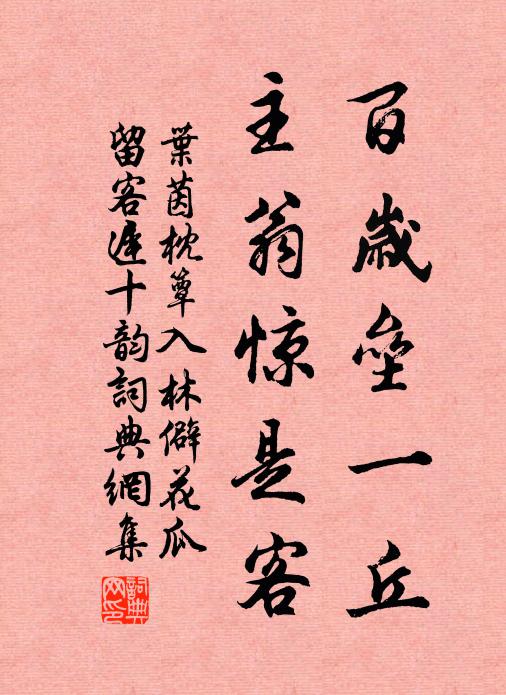 百歲壑一丘
主翁惊是客
葉茵枕簟入林僻花瓜
留客遲十韵詞典網集
詞典网印